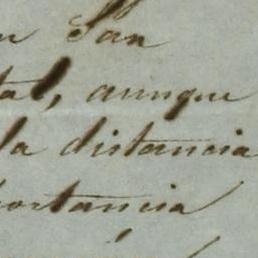 San
tal, aunque
la distancia
portancia